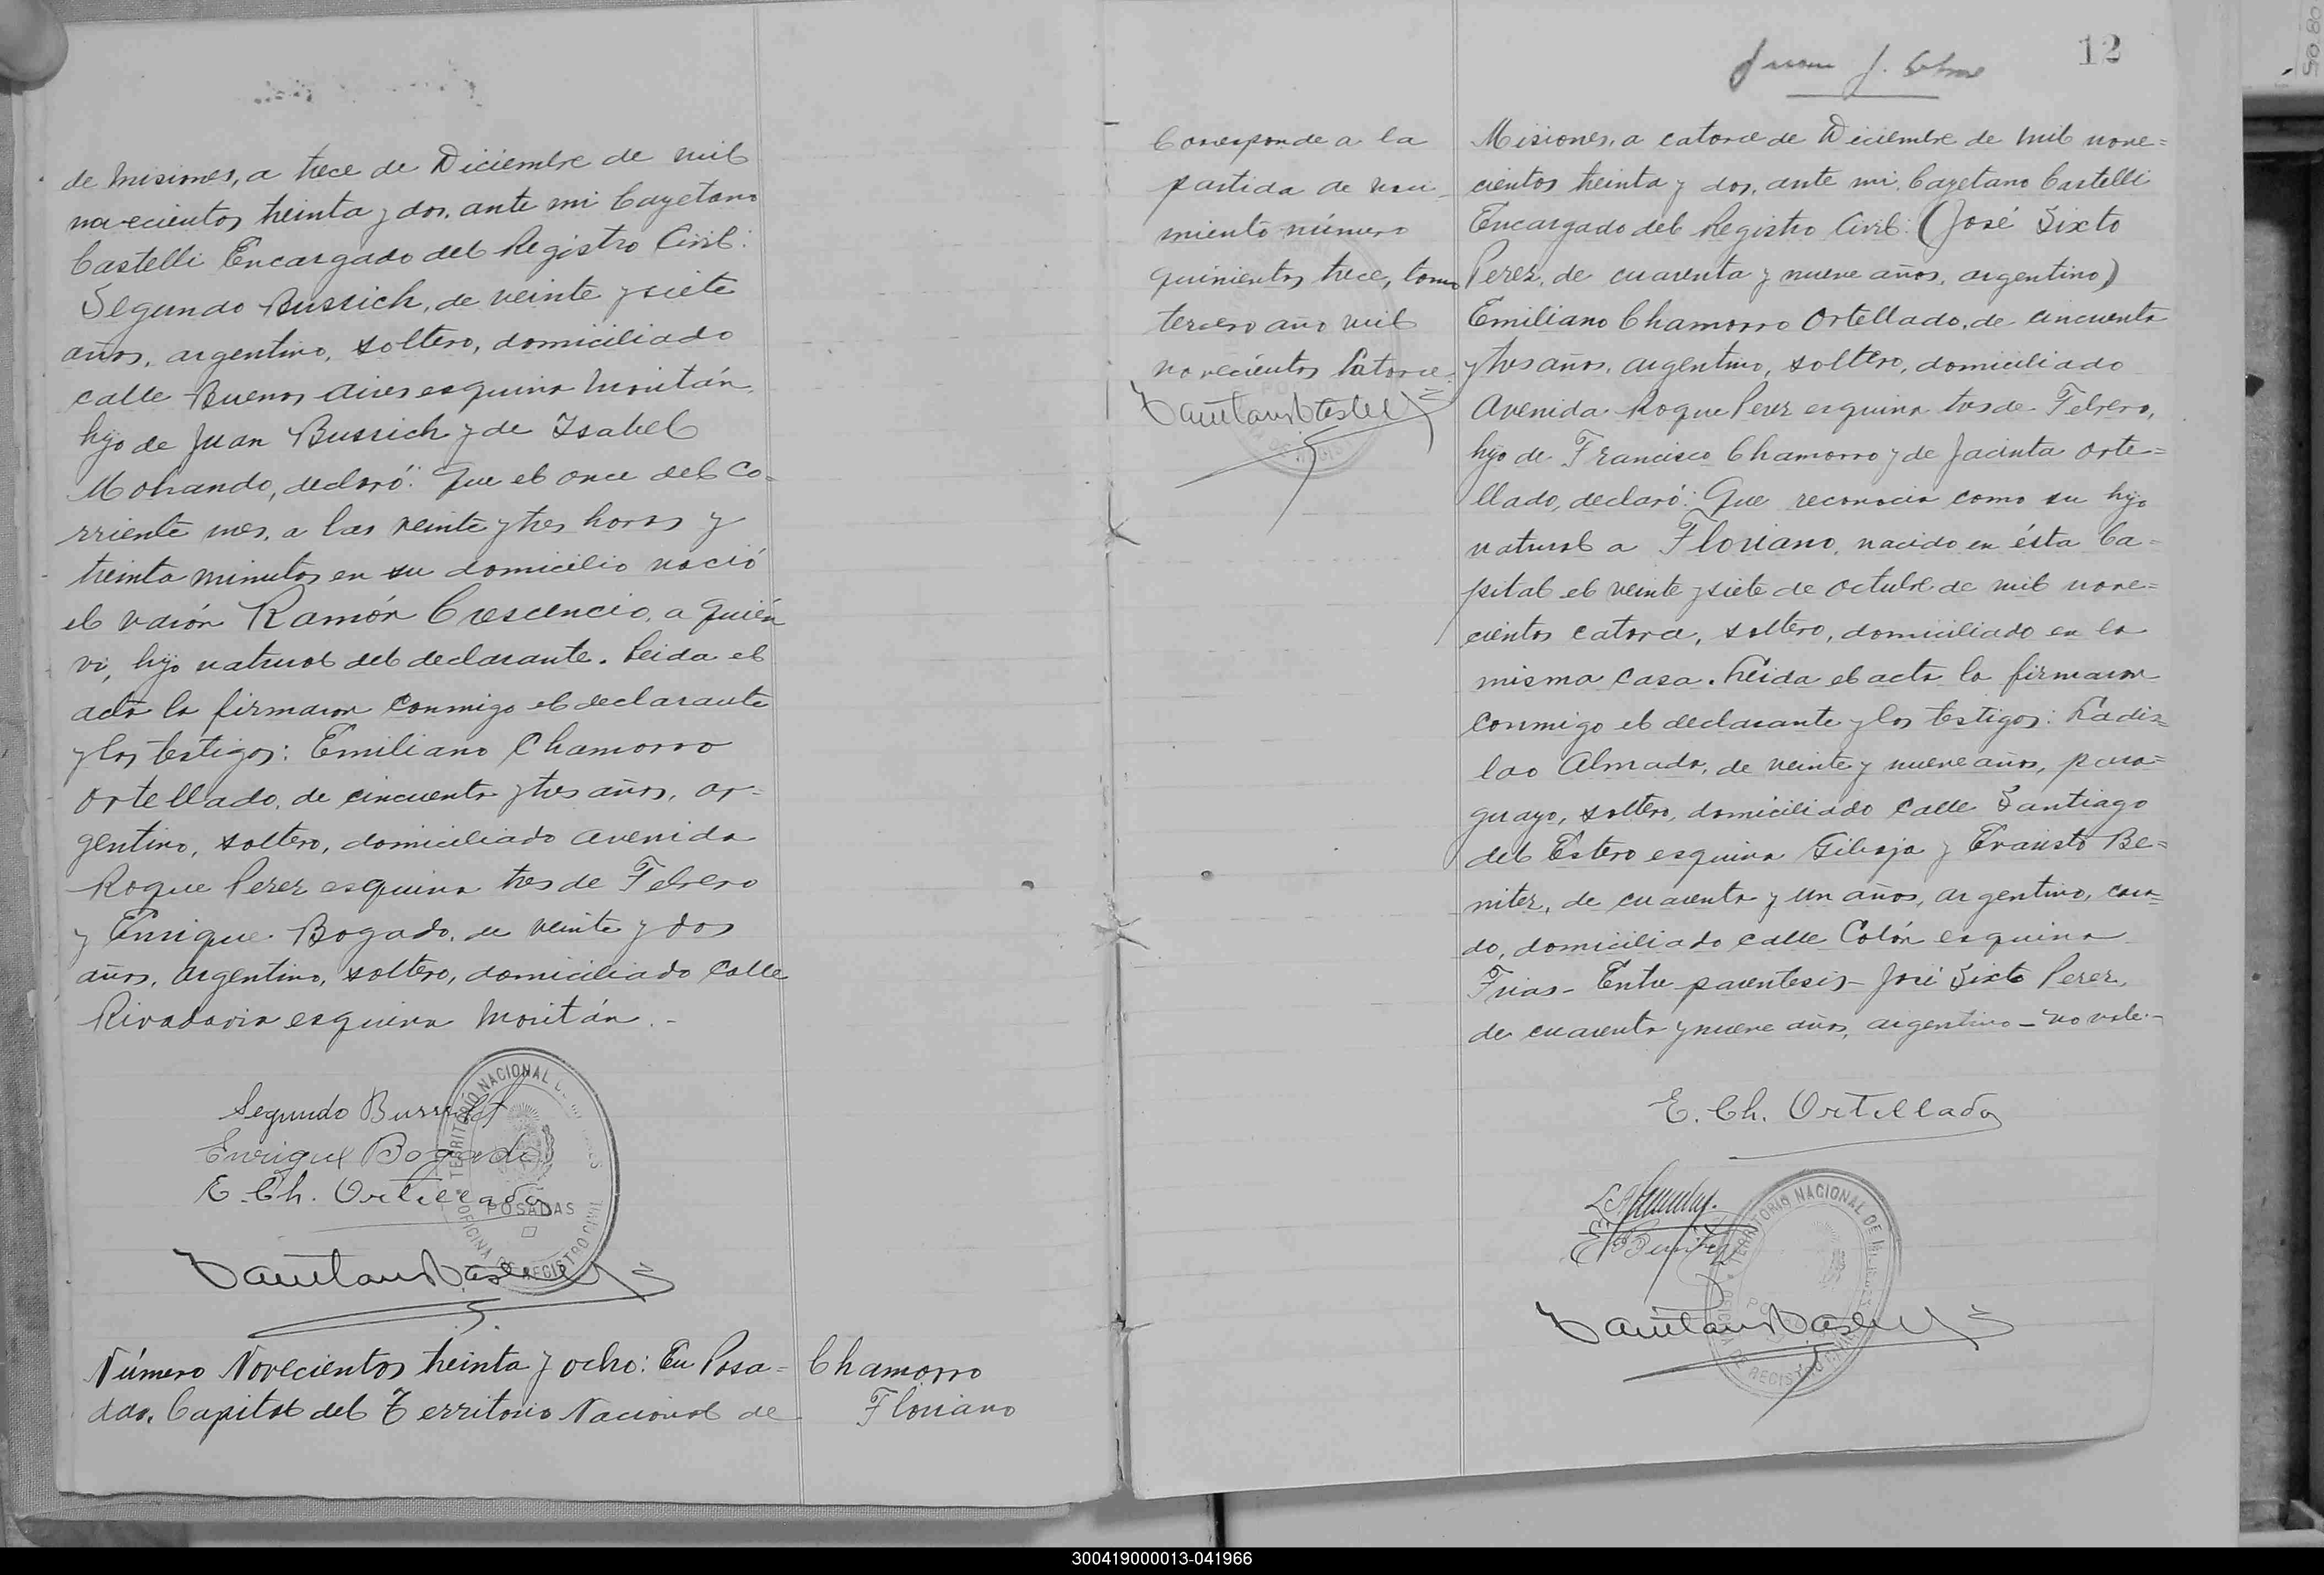 de Misiones, a trece de Diciembre de mil
novecientos treinta y dos, ante mi Cayetano
Castelli Encargado del Registro Civil:
Segundo Bussich, de veinte y siete
años, argentino, soltero, domiciliado
calle Buenos Aires esquina Moritán,
hijo de Juan Bussich y de Isabel
Morando, declaró: Que el once del co-
rriente mes, a las veinte y tres horas y
treinta minutos en su domicilio nació
el varón Ramón Crescencio, a quién
vi, hijo natural del declarante. Leida el
acta la firmaron conmigo el declarante
y los testigos: Emiliano Chamorro
Ortellado, de cincuenta y tres años, ar=
gentino, soltero, domiciliado avenida
Roque Perez esquina tres de Febrero
y Enrique Bogado, de veinte y dos
años, argentino, soltero, domiciliado calle
Rivadavia esquina Moritán.-
Segundo Bussich
Enrique Bogado
E. Ch. Ortellado
TERRITORIO NACIONAL DE MISIONES
POSADAS
OFICINA DE REGISTRO CIVIL
Número Novecientos treinta y ocho: En Posa=
das, Capital del Territorio Nacional de
Chamorro
Floriano
12
Juan J.
Corresponde a la
partida de naci-
miento número
quinientos trece, tomo
tercero año mil
novecientos catorce.
Misiones, a catorce de Diciembre de mil nove=
cientos treinta y dos, ante mi, Cayetano Castelli
Encargado del Registro Civil: (José Sixto
Perez, de cuarenta y nueve años, argentino)
Emiliano Chamorro Ortellado, de cincuenta
y tres años, argentino, soltero, domiciliado
Avenida Roque Perez esquina tres de Febrero,
hijo de Francisco Chamorro y de Jacinta Orte=
llado, declaró: Que reconocia como su hijo
natural a Floriano, nacido en ésta Ca-
pital el veinte y siete de octubre de mil nove=
cientos catorce, soltero, domiciliado en la
misma casa. Leida el acta la firmaron
conmigo el declarante y los testigos: Ladis=
lao Almada, de veinte y nueve años, para=
guayo, soltero, domiciliado calle Santiago
del Estero esquina Gibaja y Evaristo Be=
nitez, de cuarenta y un años, argentino, casa=
do, domiciliado calle Colón esquina
Frias- Entre parentesis- José Sixto Perez,
de cuarenta y nueve años, argentino- no vale.-
E. Ch. Ortellado
TERRITORIO NACIONAL DE MISIONES
DE REGISTRO CIVIL
300419000013-041966